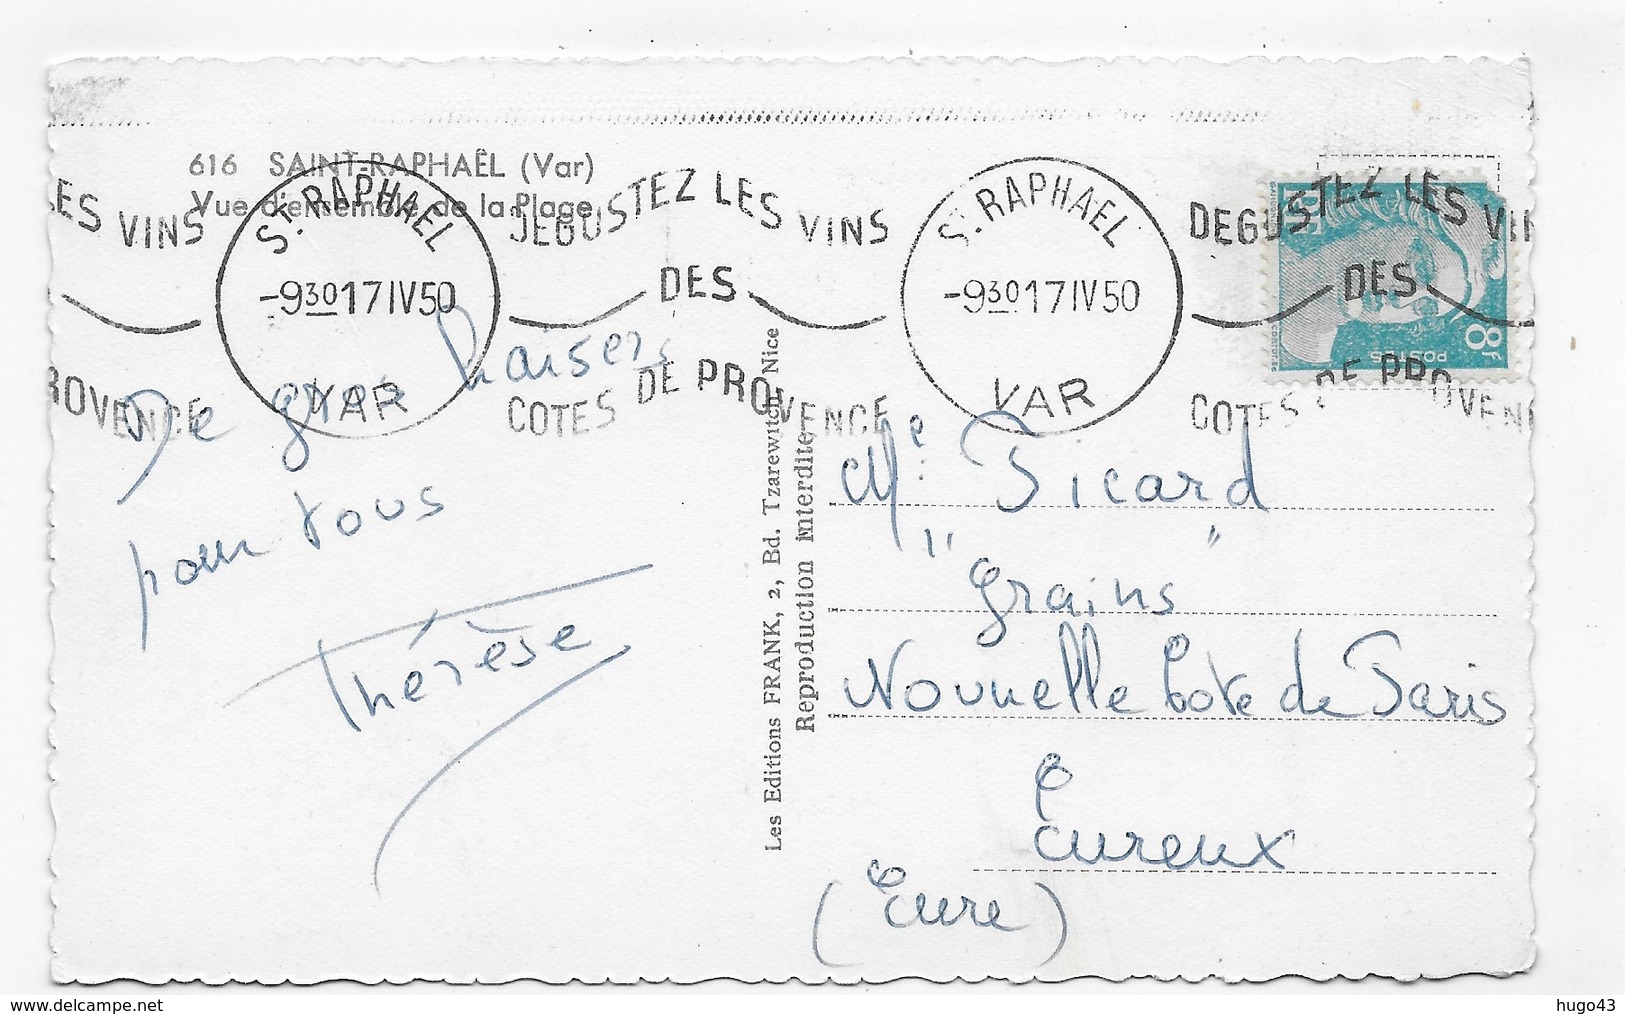 616 SAINT-RAPHAËL (Var)
Vue d'ensemble de la Plage
LES VINS
PROVENCE
ST. RAPHAEL
-9 30 17 IV 50
VAR
DEGUSTEZ LES VINS
DES
COTES DE PROVENCE
ST. RAPHAEL
-9 30 17 IV 50
VAR
DEGUSTEZ LES VIN
DES
COTES DE PROVENC
8F
POSTES
De gros baisers
pour tous
Thérèse
Les Editions FRANK, 2, Bd. Tzarewitch, Nice
Reproduction interdite
Me Picard
"Grains"
Nouvelle Cote de Paris
Evreux
(Eure)
www.delcampe.net
hugo43